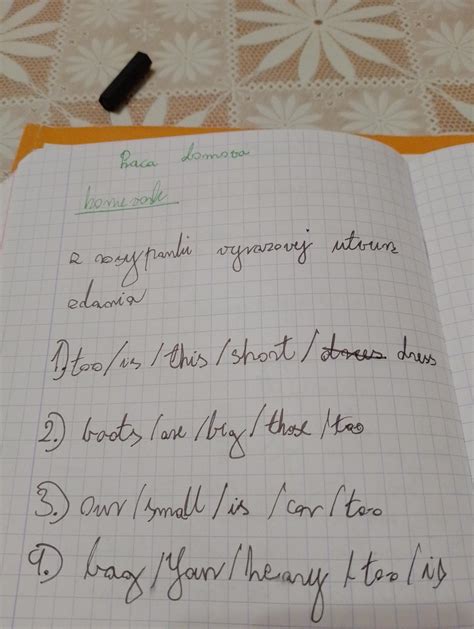 Praca domowa
homework
z rozsypanki wyrazowej utwórz
zdania
1) too/is/this/short/dress dress
2.) boots/are/big/those/too
3.) our/small/is/car/too
4.) bag/Your/heavy/too/is